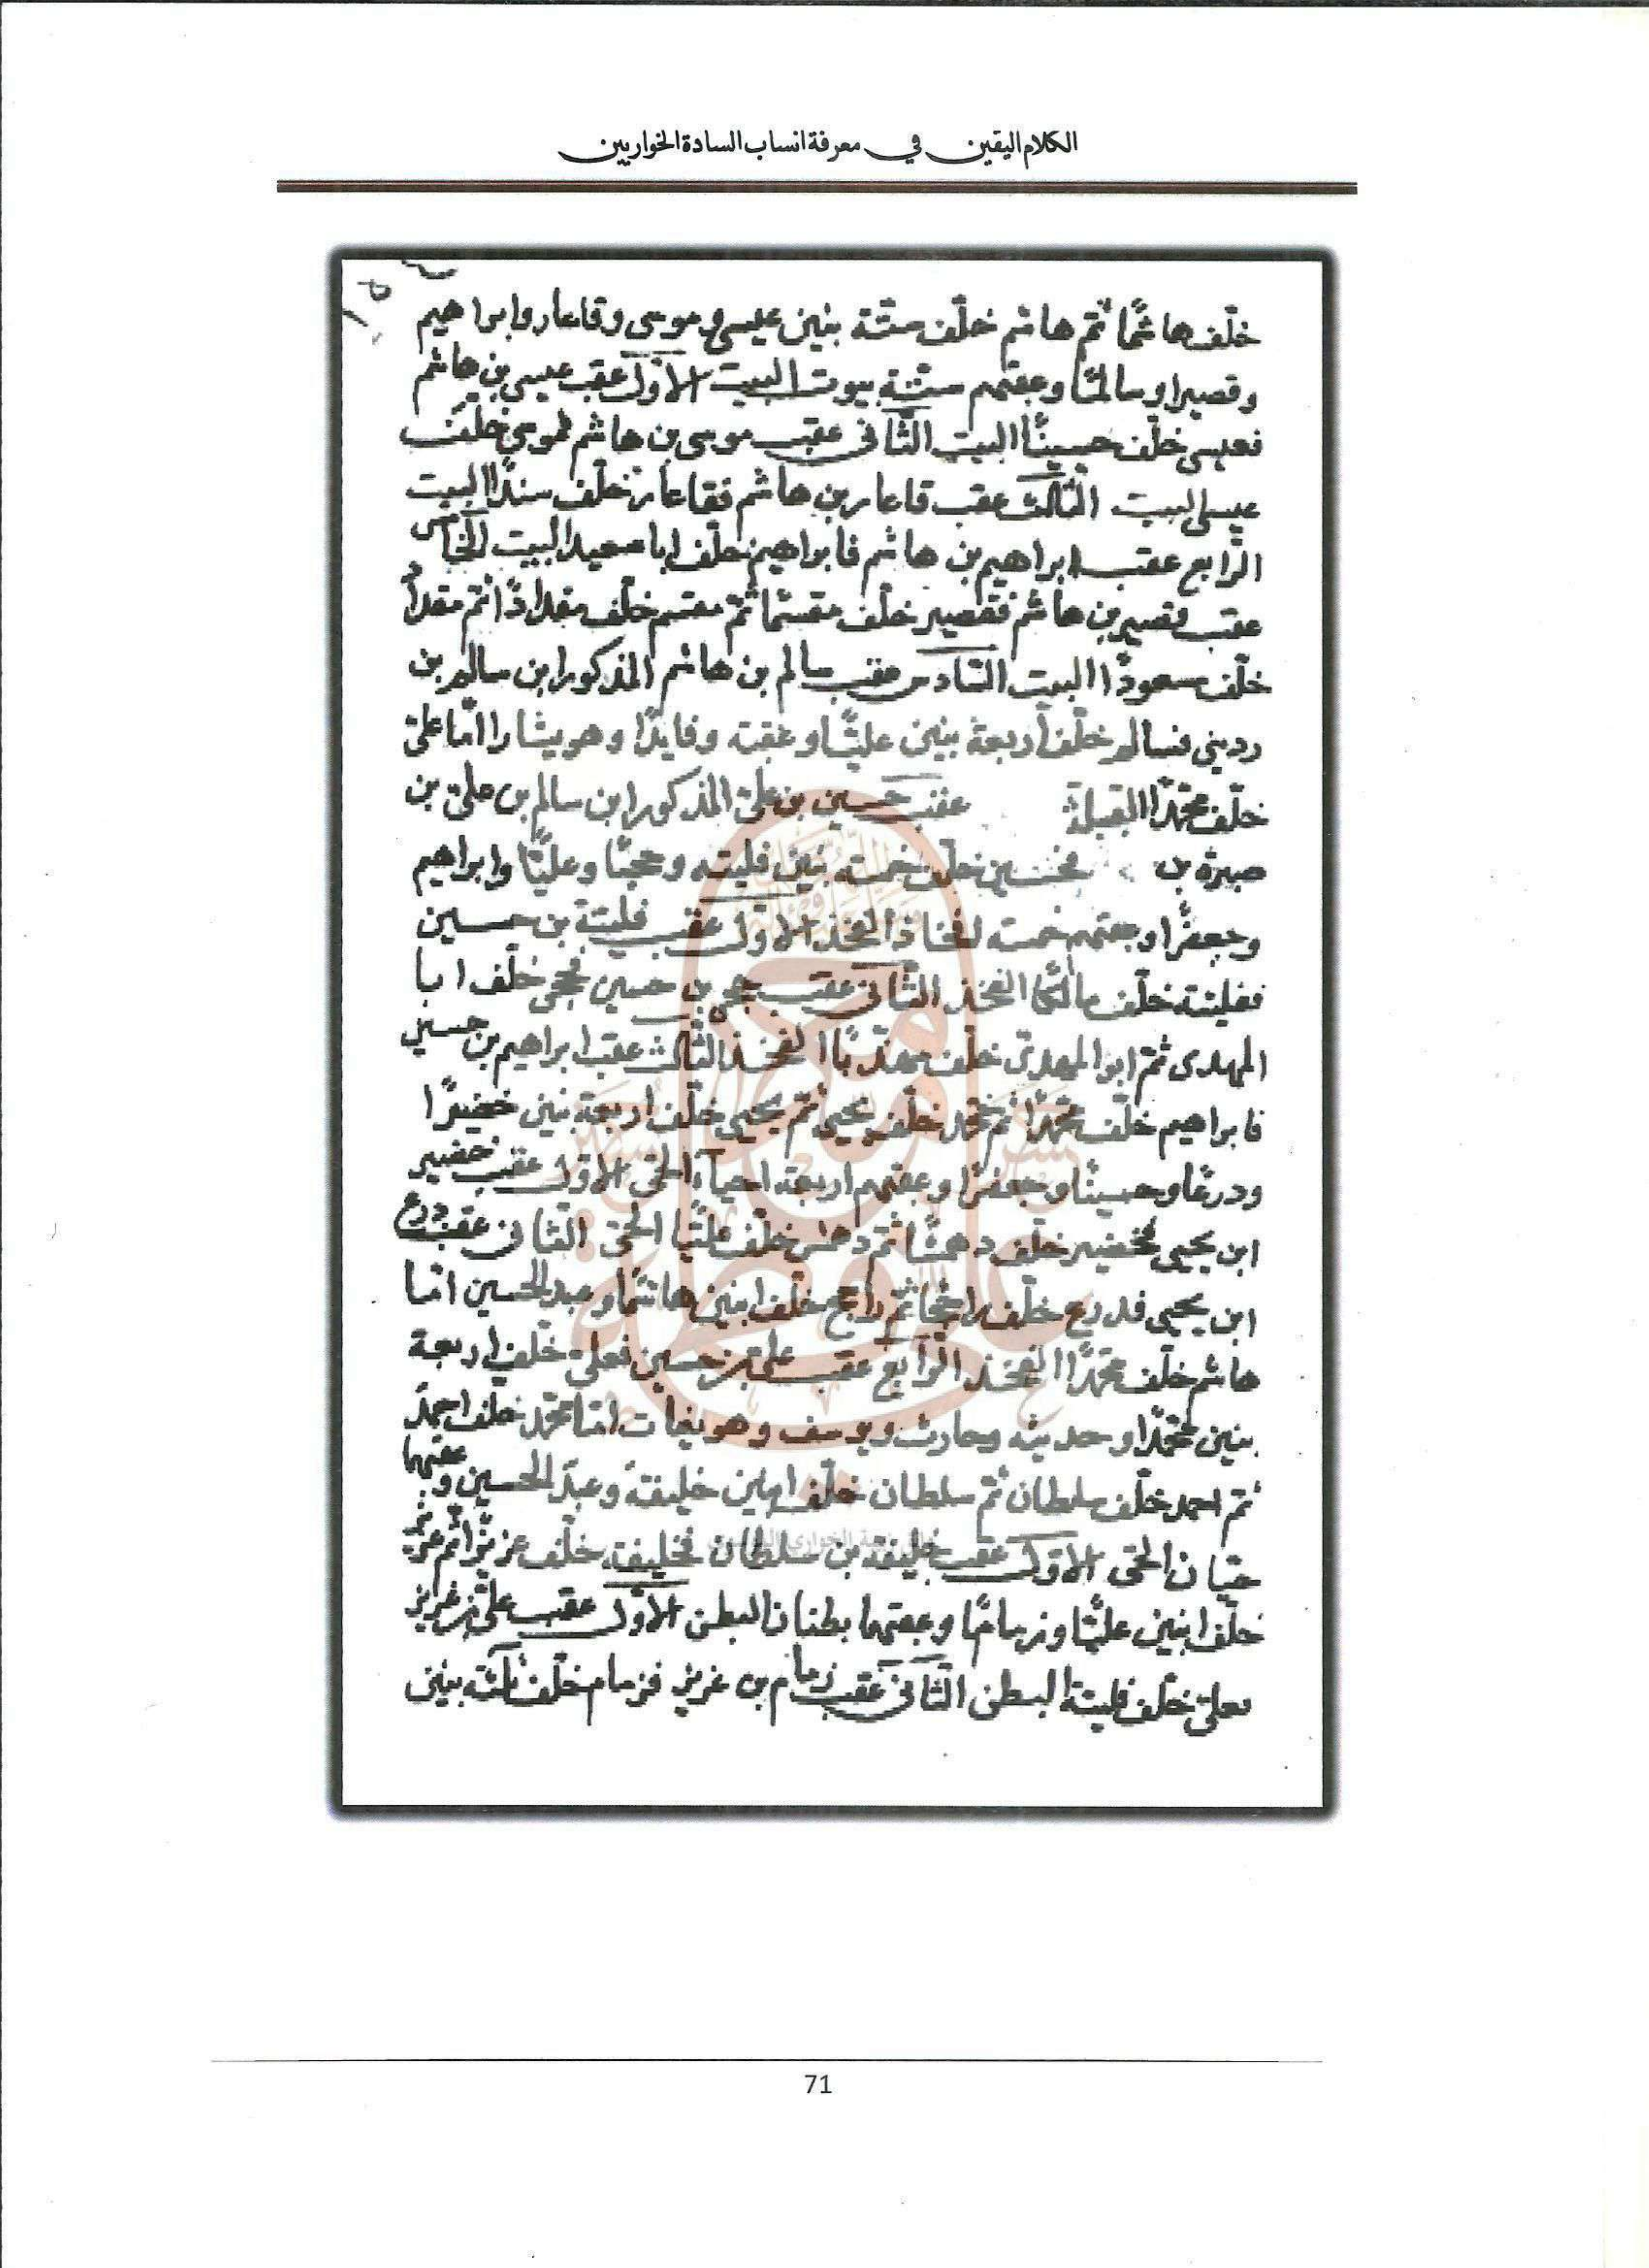 الكلام اليقين في معرفة انساب السادة الخواريين
خلّف هاشمًا ثمّ هاشم خلّف ستّة بنين عيسى وموسى وقاعار وابراهيم
وقصيرا وسالمًا وعقبهم ستّة بيوت البيت الاوّل عقب عيسى بن هاشم
فعيسى خلّف حسينًا البيت الثّانى عقب موسى بن هاشم فموسى خلّف
عيسى البيت الثّالث عقب قاعار بن هاشم فقاعار خلّف سندًا البيت
الرّابع عقب ابراهيم بن هاشم فابراهيم خلّف ابا سعيد البيت الخامس
عقب قصير بن هاشم فقصير خلّف مقسمًا ثمّ مقسم خلّف مقدادًا ثمّ مقداد
خلّف سعودًا البيت السّادس عقب سالم بن هاشم المذكور ابن سالم بن
ردينى فسالم خلّف اربعة بنين عليًّا وعقبة وفايدًا وهويشا را امّا علىّ
خلّف محمّدًا القبيلة عقب حسين بن علىّ المذكور ابن سالم بن علىّ بن
صبرة بن فحسين خلّف خمسة بنين فليته وحجيًّا وعليًّا وابراهيم
وجعفرًا وعقبهم خمسة افخاذ الفخذ الاوّل عقب فليتة بن حسين
ففليتة خلّف مالكًا الفخذ الثّانى عقب حجى بن حسين فحجى خلّف ابا
المهدى ثمّ ابو المهدىّ خلّف مهدبًا الفخذ الثّالث عقب ابراهيم بن حسين
فابراهيم خلّف محمّدًا ثمّ محمّد خلّف يحيى ثمّ يحيى خلّف اربعة بنين خضيرًا
ودرعًا وحسينًا وجعفرًا وعقبهم اربعة احياء الحىّ الاوّل عقب خضير
ابن يحيى فخضير خلّف دهمشًا ثمّ دهمش خلّف عليًّا الحىّ الثّانى عقب درع
ابن يحيى فدرع خلّف راجحًا ثمّ راجح خلّف ابنين هاشمًا وعبد الحسين امّا
هاشم خلّف محمّدًا الفخذ الرّابع عقب علىّ بن حسين فعلىّ خلّف اربعة
بنين محمّدًا وحديثه وحارث ويوسف وهو بغيات امّا محمّد خلّف احمد
ثمّ احمد خلّف سلطان ثمّ سلطان خلّف ابنين خليفة وعبد الحسين وعقبهما
حيّان الحىّ الاوّل عقب خليفة بن سلطان فخليفة خلّف عزيزًا ثمّ عزيز
خلّف ابنين عليًّا وزمامًا وعقبهما بطنان البطن الاوّل عقب علىّ بن عزيز
فعلىّ خلّف فليتة البطن الثّانى عقب زمام بن عزيز فزمام خلّف ثلاثة بنين
71